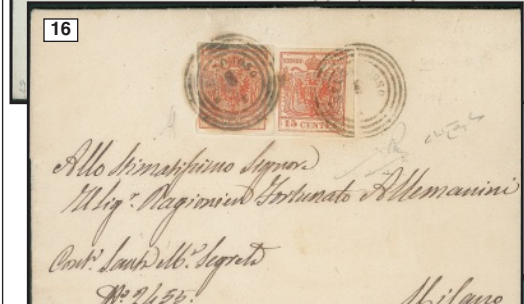 16
15 CENTES
Allo Stimatissimo Signore
Il Sigr. Ragioniere Fortunato Allemanini
Contr. Santa Mr. Segreta
No. 2455.
Milano